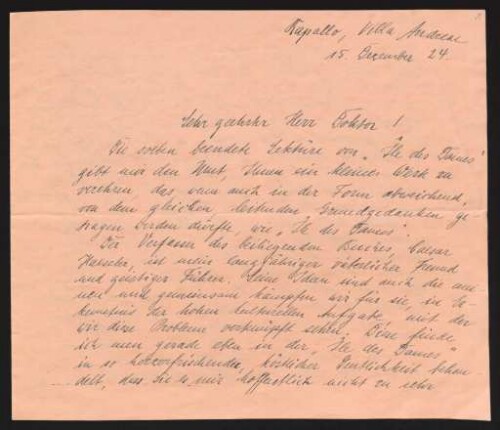 Rapallo, Villa Andreae
15. Dezember 24.
Sehr geehrter Herr Doktor!
Die soeben beendete Lektüre von "Ile des Dames"
gibt mir den Mut, Ihnen ein kleines Werk zu
verehren, das wenn auch in der Form abweichend,
von dem gleichen, leitenden Grundgedanken ge-
tragen werden dürfte, wie "Ile des Dames".
Der Verfasser des beiliegenden Buches, Caesar
ist mein langjähriger väterlicher Freund
und geistiger Führer. Seine Ideen sind auch die mei-
nen und gemeinsam kämpfen wir für sie, in Er-
kenntnis der hohen kulturellen Aufgabe, mit der
wir diese Probleme verknüpft sehen. Diese finde
ich nun gerade eben in der "Ile des Dames"
in so herzerfrischender, köstlicher Deutlichkeit behan-
delt, dass Sie es mir hoffentlich nicht zu sehr